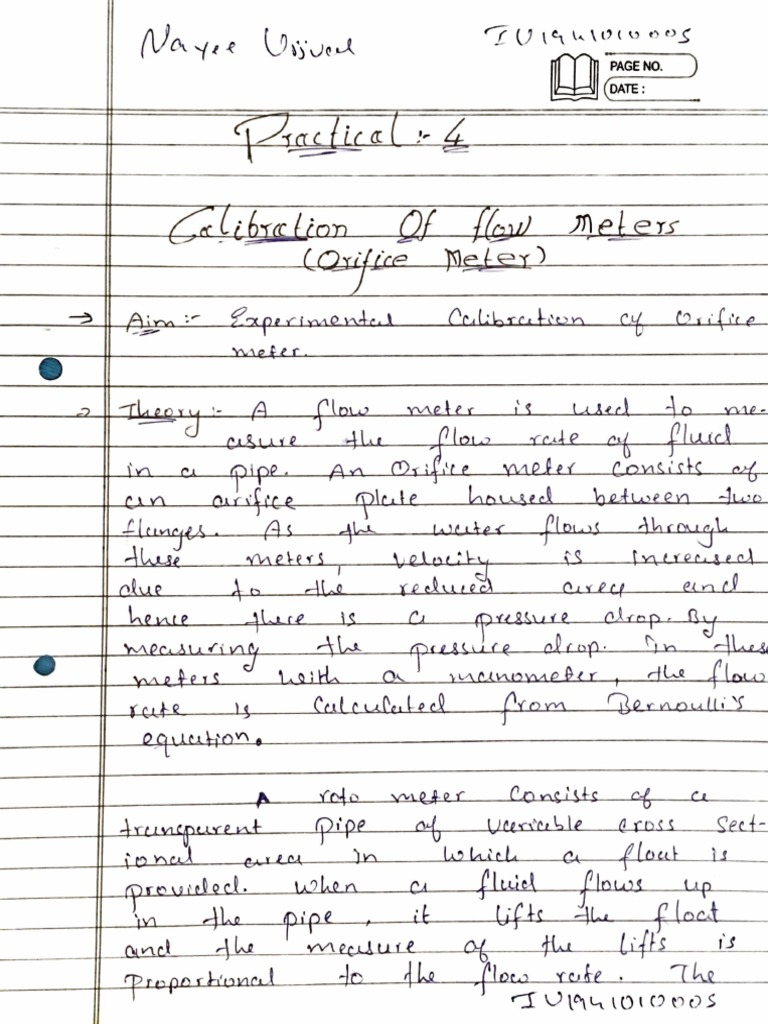 Nayee Ujjval
IU1941010005
PAGE NO.
DATE :
Practical :- 4
Calibration Of flow Meters
(Orifice Meter)
→ Aim :- Experimental Calibration of Orifice
meter.
→ Theory :- A flow meter is used to me-
asure the flow rate of fluid
in a pipe. An Orifice meter consists of
an orifice plate housed between two
flanges. As the water flows through
these meters, velocity is increased
due to the reduced area and
hence there is a pressure drop. By
measuring the pressure drop. In these
meters with a manometer, the flow
rate is Calculated from Bernoulli's
equation.
A roto meter Consists of a
transparent pipe of variable cross sect-
ional area in which a float is
provided. When a fluid flows up
in the pipe, it lifts the float
and the measure of the lifts is
proportional to the flow rate. The
IU1941010005